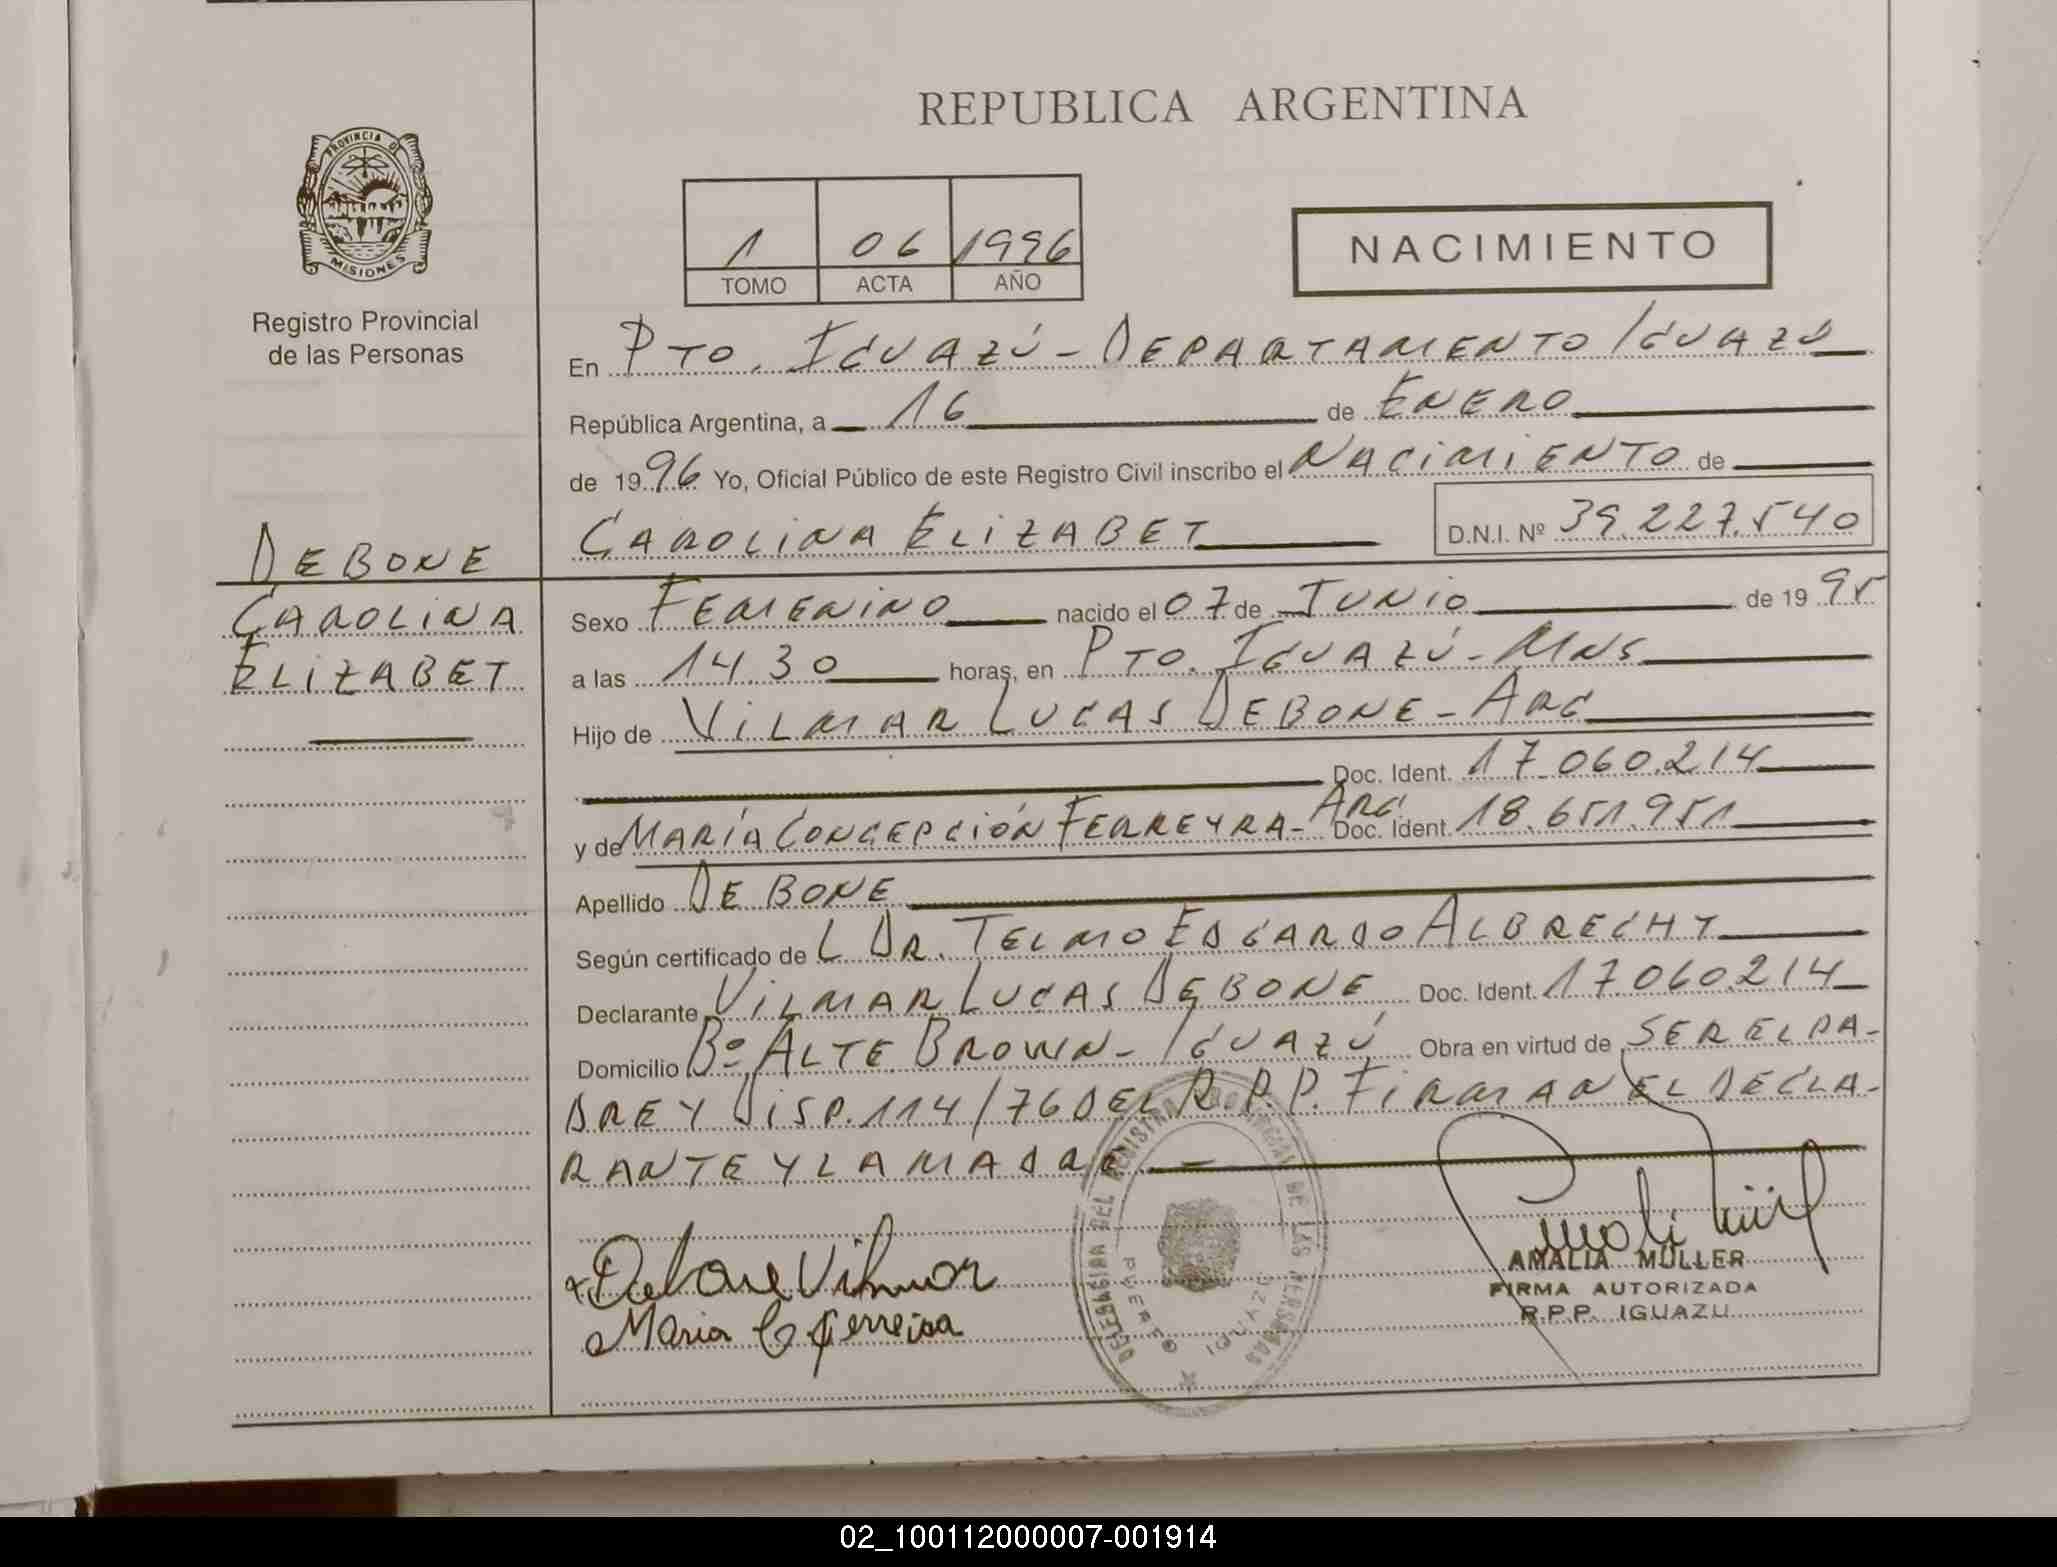 REPUBLICA ARGENTINA
PROVINCIA DE
MISIONES
Registro Provincial
de las Personas
1 06 1996
TOMO ACTA AÑO
NACIMIENTO
En PTO. IGUAZÚ - DEPARTAMENTO IGUAZÚ
República Argentina, a 16 de ENERO
de 1996 Yo, Oficial Público de este Registro Civil inscribo el NACIMIENTO de
CAROLINA ELIZABET D.N.I. Nº 39.227.540
DEBONE
CAROLINA
ELIZABET
Sexo FEMENINO nacido el 07 de JUNIO de 1995
a las 14.30 horas, en PTO. IGUAZÚ - MNS
Hijo de VILMAR LUCAS DEBONE - ARG
Doc. Ident. 17.060.214
y de MARÍA CONCEPCIÓN FERREYRA - ARG. Doc. Ident. 18.651.951
Apellido DEBONE
Según certificado de L DR. TELMO EDGARDO ALBRECHT
Declarante VILMAR LUCAS DEBONE Doc. Ident. 17.060.214
Domicilio Bº ALTE BROWN - IGUAZÚ Obra en virtud de SER EL PA-
DRE Y DISP. 114/76 DEL R.P.P. FIRMAN EL DECLA-
RANTE Y LA MADRE
Debone Vilmar
Maria C Ferreira
DELEGACION DEL REGISTRO PROVINCIAL DE LAS PERSONAS
PUERTO IGUAZU
AMALIA MULLER
FIRMA AUTORIZADA
R.P.P. IGUAZU
02_100112000007-001914